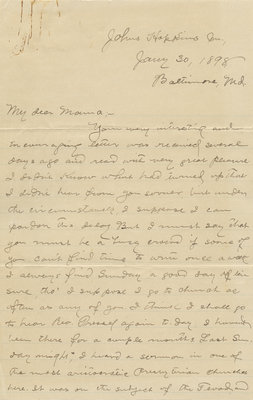 Johns Hopkins Un.
Jany 30, 1898
Baltimore, Md.
My dear Mamma,—
Your very interesting and
encouraging letter was received several
days ago and read with very great pleasure
I didn't know what had turned up that
I didn't hear from you sooner but under
the circumstances I suppose I can
pardon the delay But I must say that
you must be a busy crowd if some of
you can't find time to write once a week
I always find Sunday a good day
sure, tho' I suppose I go to church as
often as any of you I think I shall go
to hear again to day I haven't
been there for a couple months Last Sun-
day night I heard a sermon in one of
the most aristocratic Presbyterian churches
here. It was on the subject of the